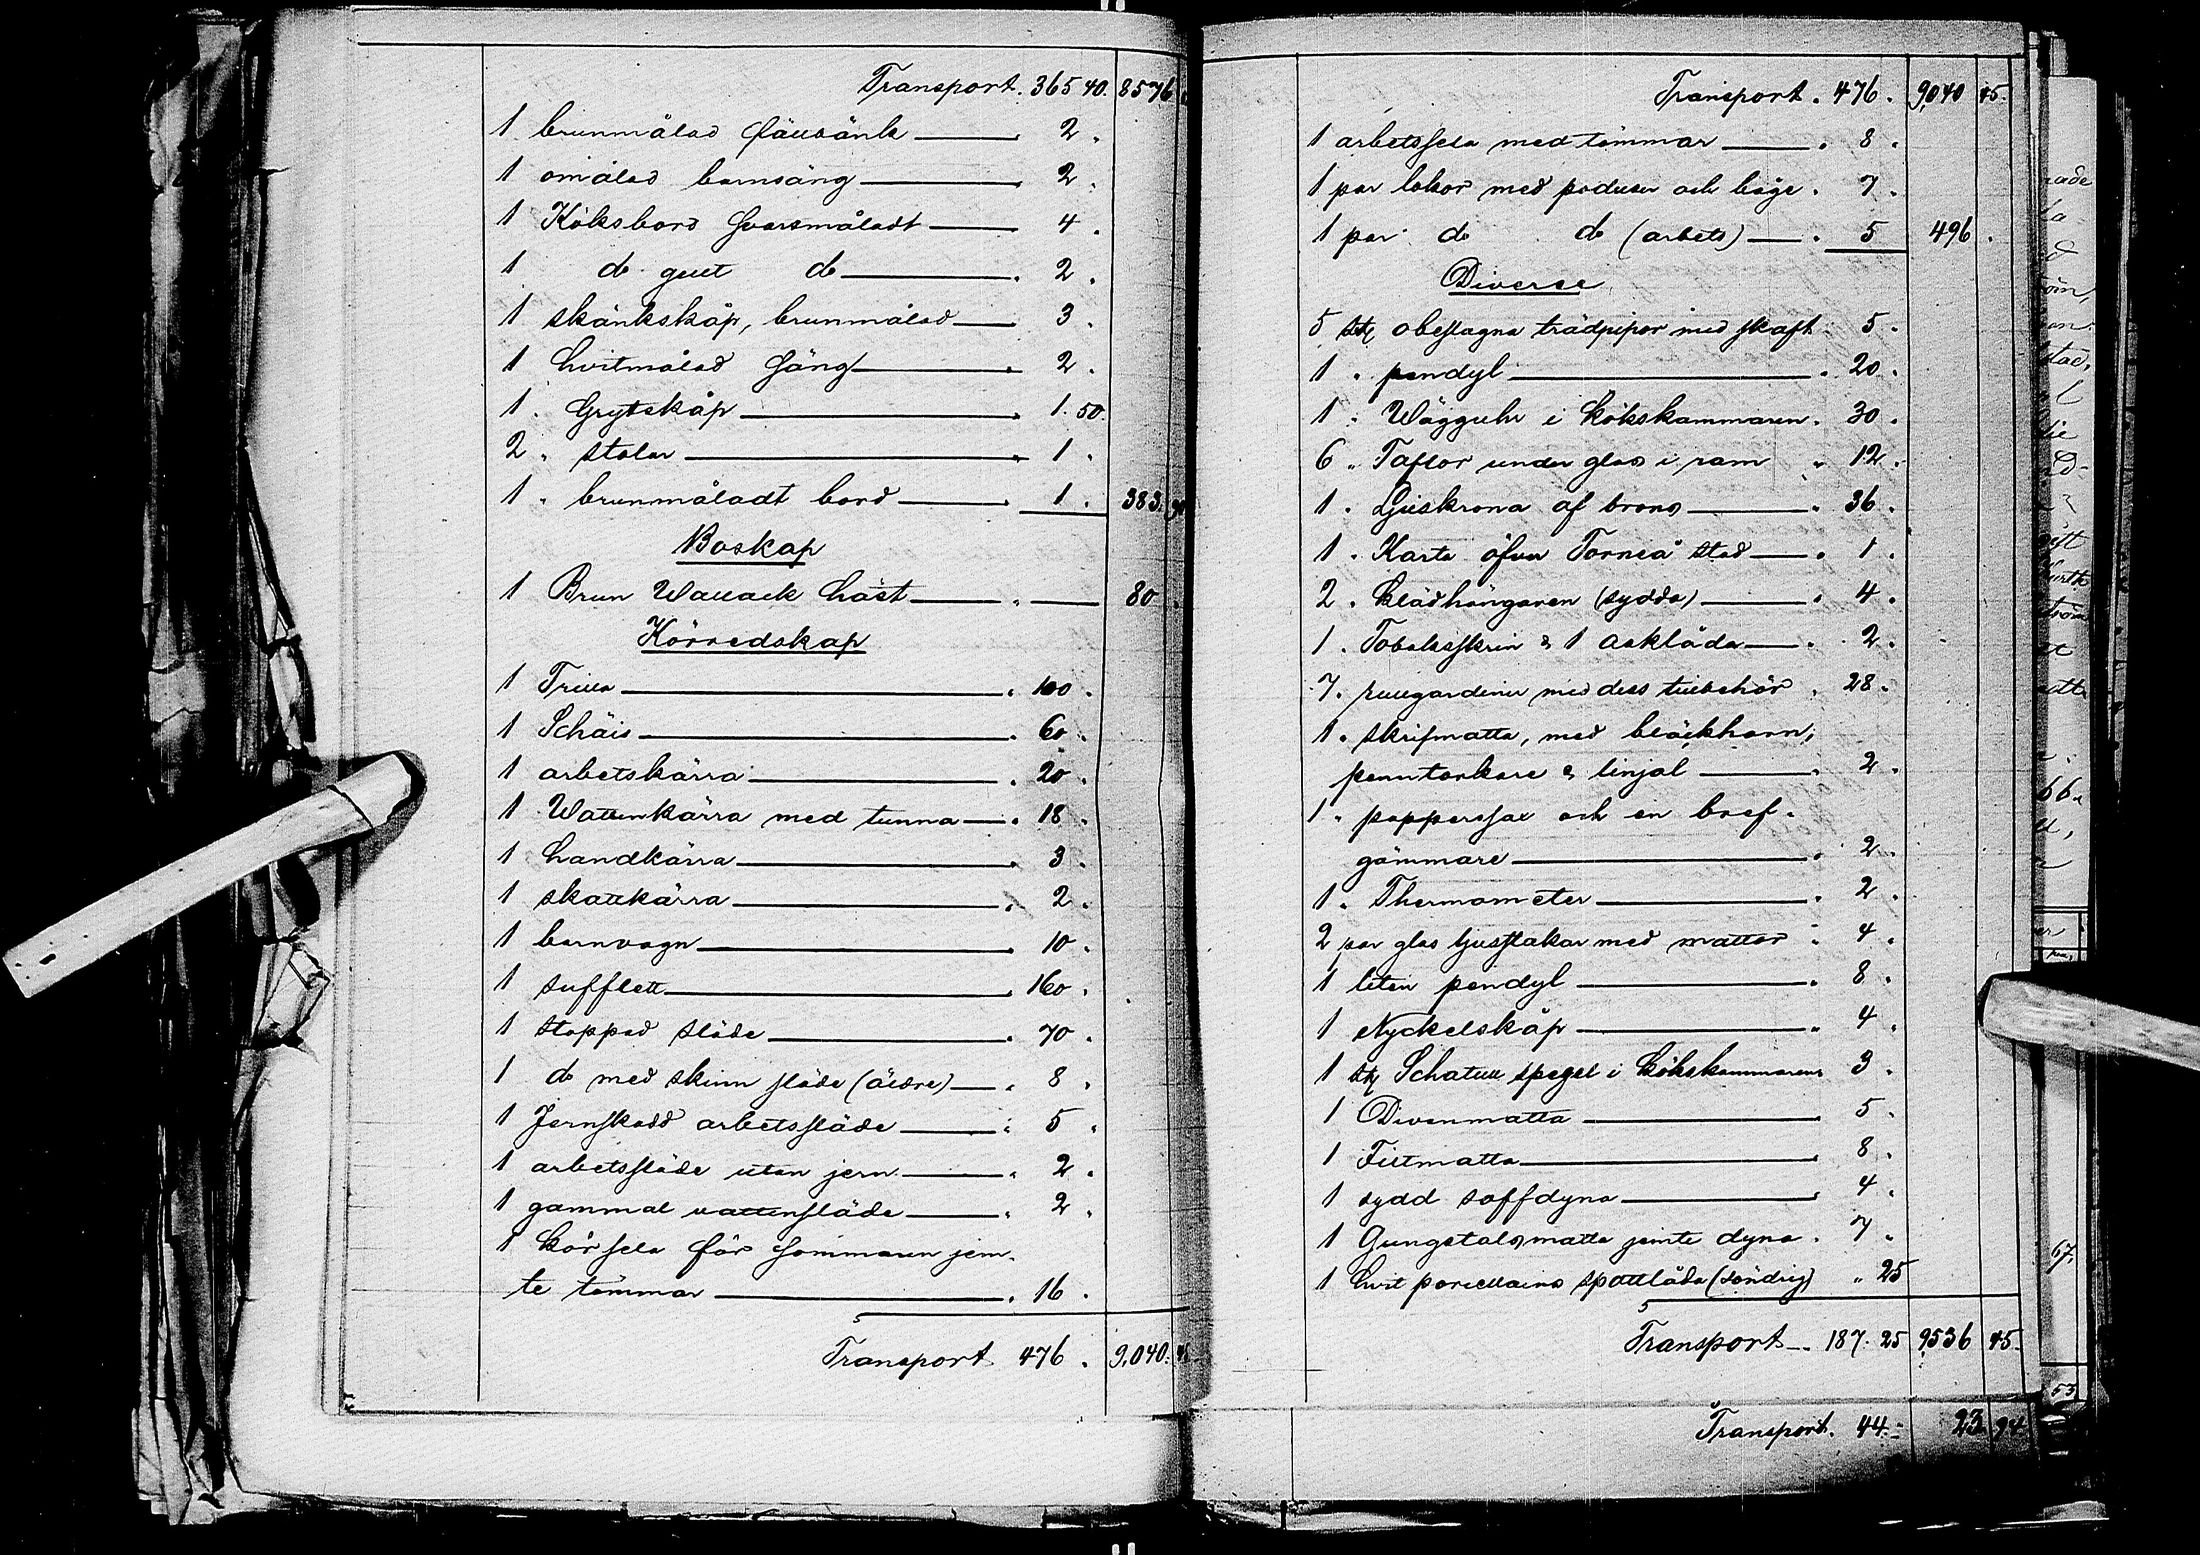 Transport. 365 40. 8576
1 brunmålad fällbänk 2.
1 omålad barnsäng 2.
1 Köksbord svartmåladt 4.
1 do gult do 2.
1 skänkskåp, brunmålad 3.
1 hvitmålad säng 2.
1. Grytskåp 1. 50.
2. stolar 1.
1. brunmåladt bord 1. 383.
Boskap
1 Brun Wallack häst 80
Körredskap
1 Trilla 100.
1 Schäis 60.
1 arbetskärra 20.
1 Wattenkärra med tunna 18.
1 handkärra 3.
1 skottkärra 2.
1 barnvagn 10.
1 sufflett 160.
1 stoppad släde 70.
1 do med skinn släde (äldre) 8.
1 Jernskodd arbetssläde 5.
1 arbetssläde utan jern 2.
1 gammal vattensläde 2.
1 körsela för sommaren jem-
te tömmar 16.
Transport 476. 9,040. 45
Transport. 476. 9,040 45.
1 arbetssela med tömmar 8.
1 par lokor med podusar och båge. 7.
1 par do do (arbets) 5 496.
Diverse
5 st. obeslagna trädpipor med skaft 5.
1. pendyl 20.
1. Wägguhr i kökskammaren. 30.
6. Taflor under glas i ram 12.
1. Ljuskrona af brons 36.
1. Karta öfver Torneå stad 1.
2. klädhängaren (sydda) 4.
1. Tobaksskrin & 1 asklåda 2.
7. rullgardiner med dess tillbehör. 28.
1. skrifmatta, med bläckhorn,
penntorkare & linjal 2.
1. papperssax och en bref-
gömmare 2.
1. Thermometer 2.
2 par glas ljusstakar med mattor 4.
1 liten pendyl 8.
1 Nyckelskåp 4.
1 st. Schatull spegel i kökskammaren 3.
1 Divanmatta 5.
1 Filtmatta 8.
1 sydd soffdyna 4.
1 Gungstolsmatta jemte dyna. 7.
1 hvit porcellains spottlåda (söndrig) " 25
Transport 187. 25 9,536 45.
Transport. 44. 23 94